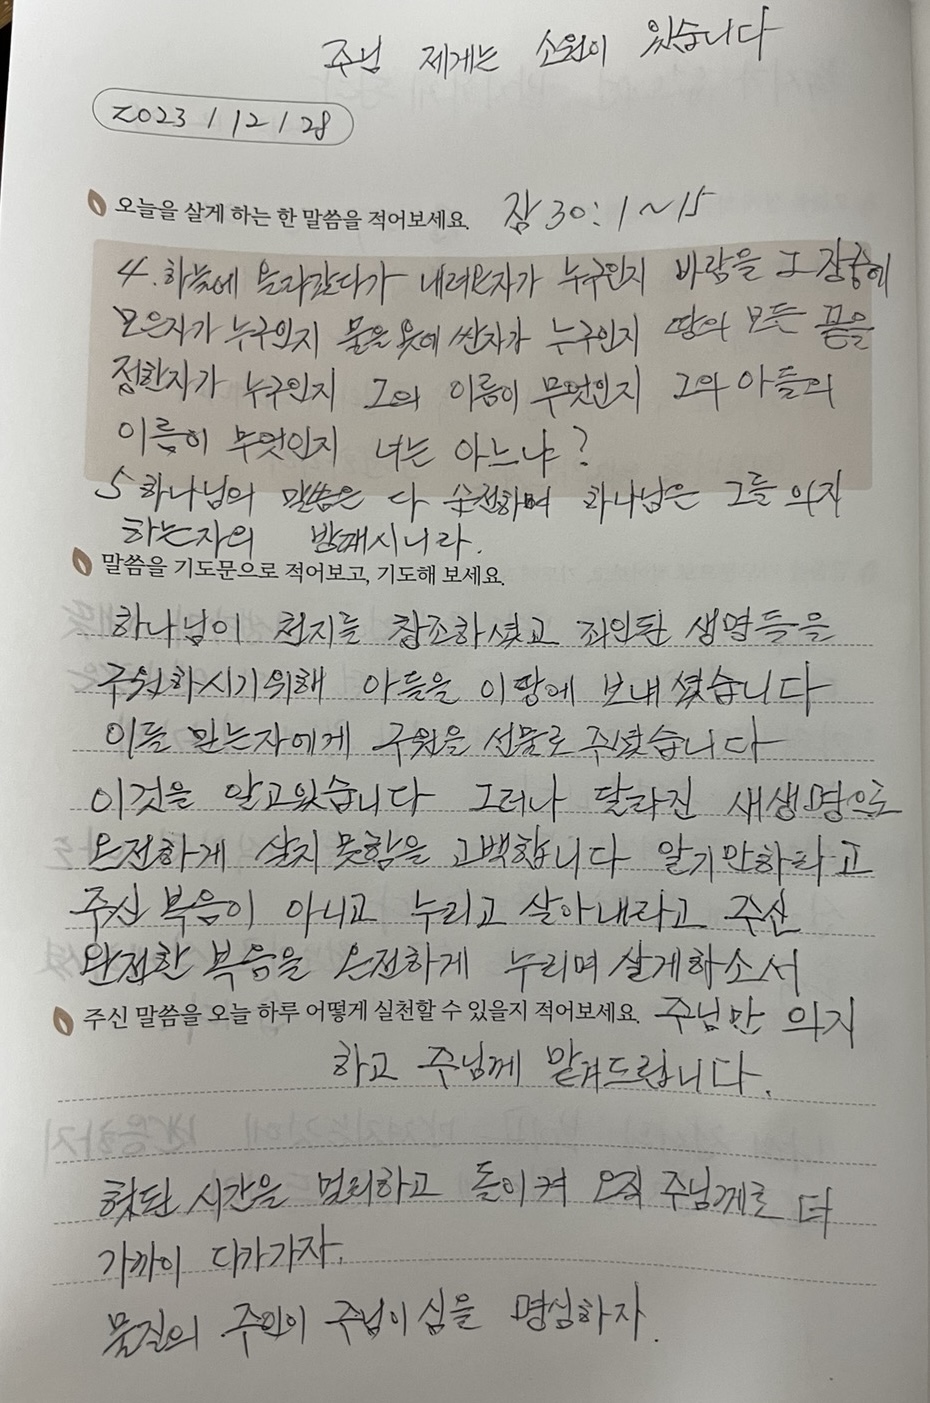 주님 제게는 소원이 있습니다
2023 / 12 / 28
오늘을 살게 하는 한 말씀을 적어보세요. 잠 30:1~15
4. 하늘에 올라갔다가 내려온자가 누구인지 바람을 그 장중에
모은자가 누구인지 물을 옷에 싼자가 누구인지 땅의 모든 끝을
정한자가 누구인지 그의 이름이 무엇인지 그의 아들의
이름이 무엇인지 너는 아느냐?
5 하나님의 말씀은 다 순전하며 하나님은 그를 의지
하는자의 방패시니라.
말씀을 기도문으로 적어보고, 기도해 보세요.
하나님이 천지를 창조하셨고 죄인된 생명들을
구원하시기위해 아들을 이땅에 보내셨습니다
이를 믿는자에게 구원을 선물로 주셨습니다
이것을 알고있습니다 그러나 달라진 새생명으로
온전하게 살지 못함을 고백합니다 알기만하라고
주신 복음이 아니고 누리고 살아내라고 주신
완전한 복음을 온전하게 누리며 살게하소서
주신 말씀을 오늘 하루 어떻게 실천할 수 있을지 적어보세요. 주님만 의지
하고 주님께 맡겨드립니다.
헛된 시간을 멀리하고 돌이켜 오직 주님께로 더
가까이 다가가자.
물질의 주인이 주님이심을 명심하자.